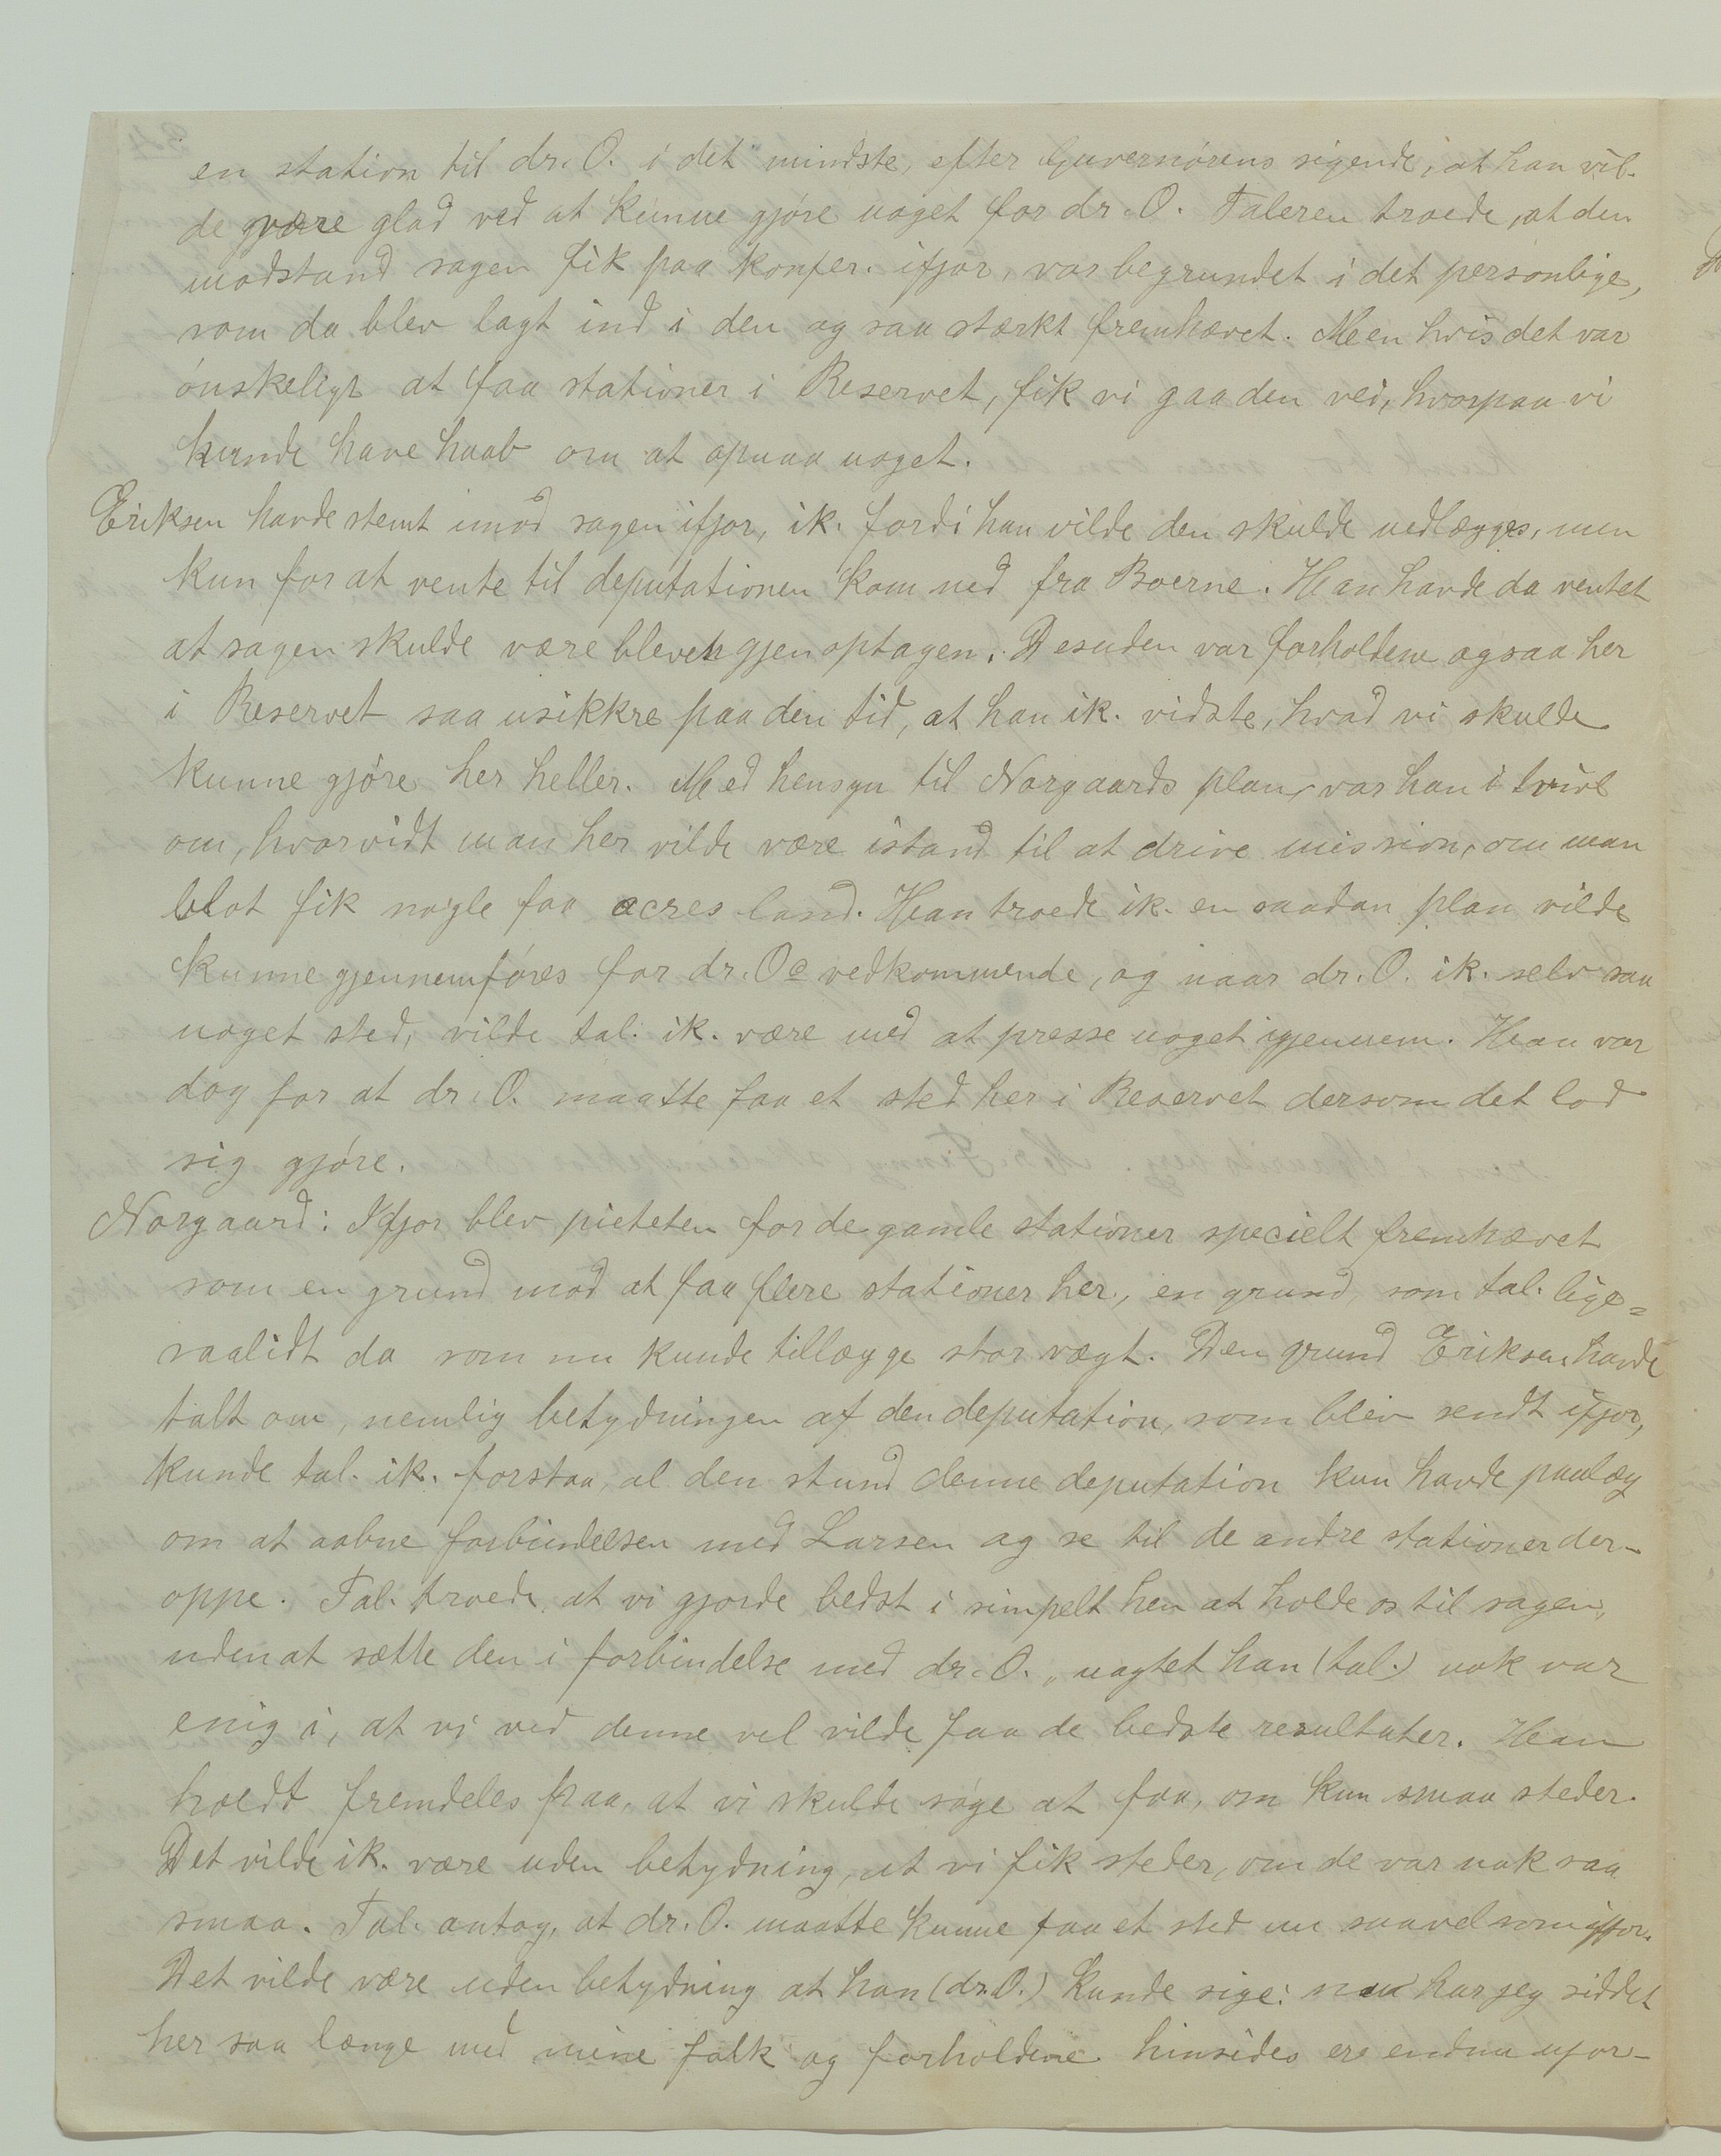 en station til dr. O. i det mindste, efter Guvernörens sigende, at han vil-
de være glad ved at kunne gjöre noget for dr. O. Taleren troede, at den
modstand sagen fik paa konfer. ifjor, var begrundet i det personlige,
som da blev lagt ind i den og saa stærkt fremhævet. Men hvis det var
önskeligt at faa stationer i Reservet, fik vi gaa den vei, hvorpaa vi
kunde have haab om at opnaa noget.
Eriksen havde stemt imod sagen ifjor, ik. fordi han vilde den skulde nedlægges, men
kun for at vente til deputationen kom ned fra Boerne. Han havde da ventet
at sagen skulde være bleven gjenoptagen. Desuden var forholdene ogsaa her
i Reservet saa usikkre paa den tid, at han ik. vidste, hvad vi skulde
kunne gjöre her heller. Med hensyn til Norgaards plan, var han i tvivl
om, hvorvidt man her vilde være istand til at drive mission, om man
blot fik nogle faa acres land. Han troede ik. en saadan plan vilde
kunne gjennemföres for dr. Os vedkommende, og naar dr. O. ik. selv saa
noget sted, vilde tal. ik. være med at presse noget igjennem. Han var
dog for at dr. O. maatte faa et sted her i Reservet dersom det lod
sig gjöre.
Norgaard: Ifjor blev pieteten for de gamle stationer specielt fremhævet
som en grund mod at faa flere stationer her, en grund, som tal. lige=
saalidt da som nu kunde tillægge stor vægt. Den grund Eriksen havde
talt om, nemlig betydningen af den deputation, som blev sendt ifjor,
kunde tal. ik. forstaa, al den stund denne deputation kun havde paalæg
om at aabne forbindelsen med Larsen og se til de andre stationer der-
oppe. Tal. troede, at vi gjorde bedst i simpelt hen at holde os til sagen,
uden at sætte den i forbindelse med dr. O., uagtet han (tal.) nok var
enig i, at vi ved denne vel vilde faa de bedste resultater. Han
holdt fremdeles paa, at vi skulde söge at faa, om kun smaa steder.
Det vilde ik. være uden betydning, at vi fik steder, om de var nok saa
smaa. Tal. antog, at dr. O. maatte kunne faa et sted nu saavel som ifjor.
Det vilde være uden betydning at han (dr. O.) kunde sige: nu har jeg siddet
her saa længe med mine folk og forholdene hinsides ere endnu ufor-